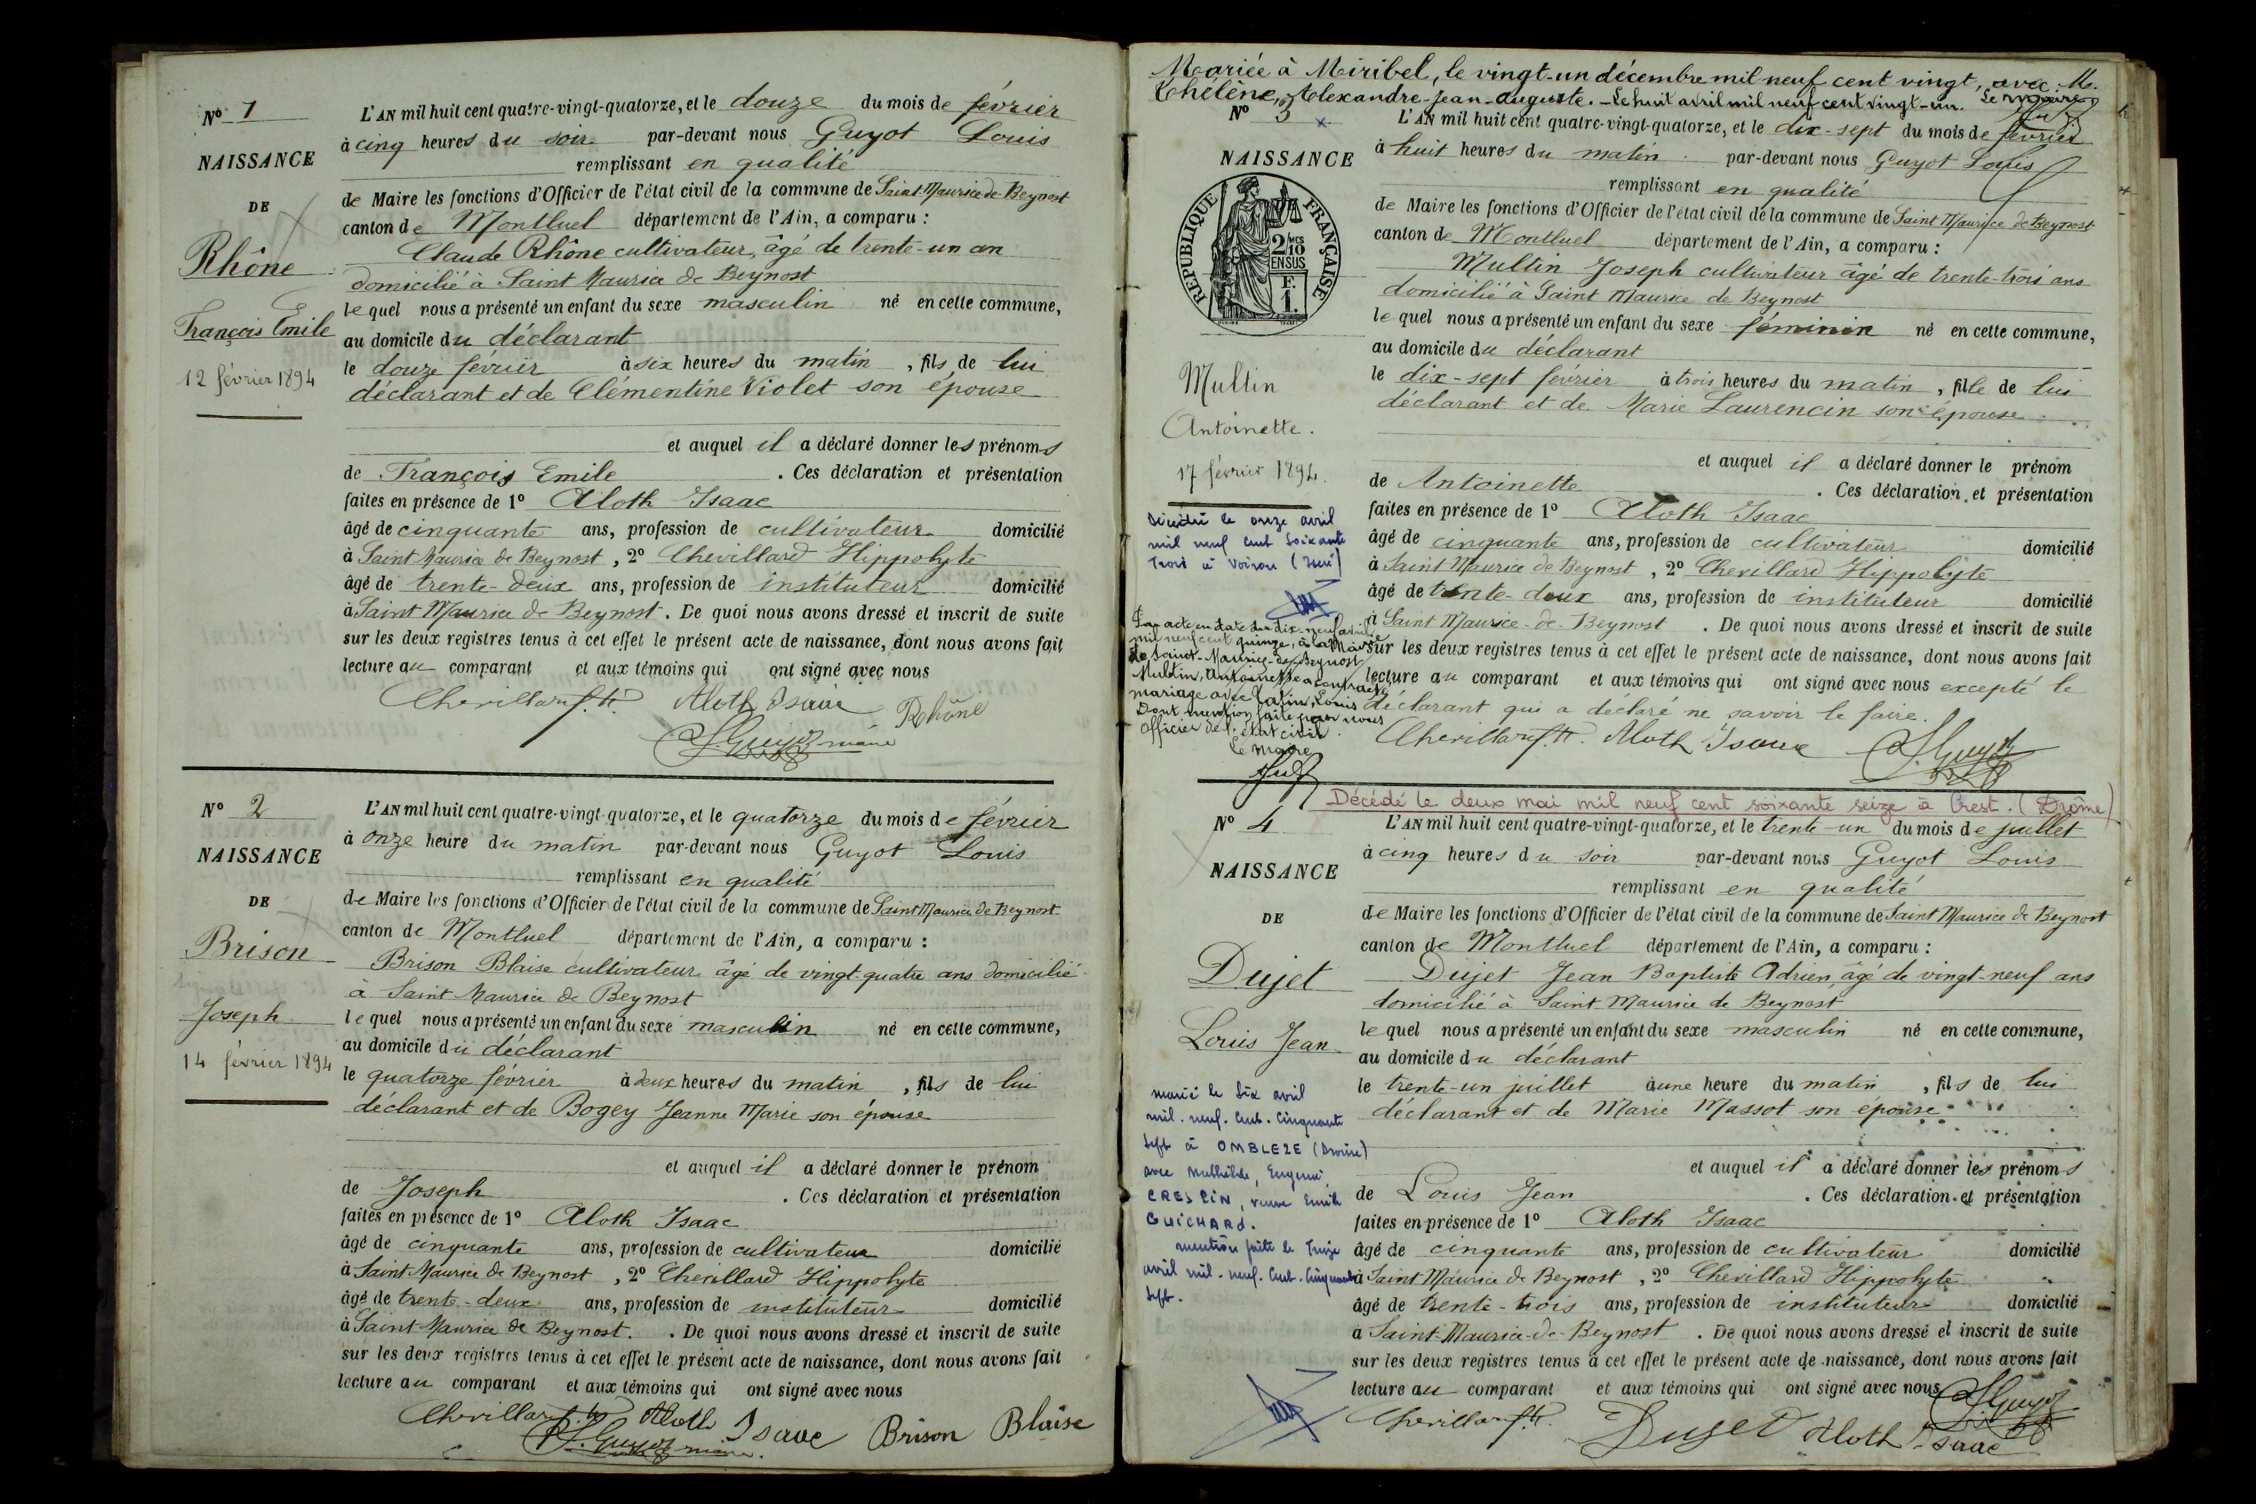 N° 1
NAISSANCE
DE
Rhône
François Emile
12 février 1894
L'AN mil huit cent quatre-vingt-quatorze, et le douze du mois de février
à cinq heures du soir par-devant nous Guyot Louis
remplissant en qualité
de Maire les fonctions d'Officier de l'état civil de la commune de Saint-Maurice de Beynost
canton de Montluel département de l'Ain, a comparu :
Claude Rhône cultivateur, âgé de trente-un an
domicilié à Saint Maurice de Beynost
lequel nous a présenté un enfant du sexe masculin né en cette commune,
au domicile du déclarant
le douze février à six heures du matin, fils de lui
déclarant et de Clémentine Violet son épouse
et auquel il a déclaré donner les prénoms
de François Emile. Ces déclaration et présentation
faites en présence de 1° Aloth Isaac
âgé de cinquante ans, profession de cultivateur domicilié
à Saint Maurice de Beynost, 2° Chevillard Hippolyte
âgé de trente-deux ans, profession de instituteur domicilié
à Saint Maurice de Beynost. De quoi nous avons dressé et inscrit de suite
sur les deux registres tenus à cet effet le présent acte de naissance, dont nous avons fait
lecture au comparant et aux témoins qui ont signé avec nous
Chevillard H. Aloth Isaac Rhône
L. Guyot maire
N° 2
NAISSANCE
DE
Brison
Joseph
14 février 1894
L'AN mil huit cent quatre-vingt-quatorze, et le quatorze du mois de février
à onze heure du matin par-devant nous Guyot Louis
remplissant en qualité
de Maire les fonctions d'Officier de l'état civil de la commune de Saint Maurice de Beynost
canton de Montluel département de l'Ain, a comparu :
Brison Blaise cultivateur âgé de vingt-quatre ans domicilié
à Saint Maurice de Beynost
lequel nous a présenté un enfant du sexe masculin né en cette commune,
au domicile du déclarant
le quatorze février à deux heures du matin, fils de lui
déclarant et de Bogey Jeanne Marie son épouse
et auquel il a déclaré donner le prénom
de Joseph. Ces déclaration et présentation
faites en présence de 1° Aloth Isaac
âgé de cinquante ans, profession de cultivateur domicilié
à Saint Maurice de Beynost, 2° Chevillard Hippolyte
âgé de trente-deux ans, profession de instituteur domicilié
à Saint Maurice de Beynost. De quoi nous avons dressé et inscrit de suite
sur les deux registres tenus à cet effet le présent acte de naissance, dont nous avons fait
lecture au comparant et aux témoins qui ont signé avec nous
Chevillard H. Aloth Isaac Brison Blaise
L. Guyot maire
Mariée à Miribel, le vingt-un décembre mil neuf cent vingt, avec M.
Thélène, Alexandre-Jean-Auguste. - Le huit avril mil neuf cent vingt-un. Le maire
N° 3
NAISSANCE
REPUBLIQUE FRANÇAISE
2/10 EN SUS
F. 1.
Multin
Antoinette.
17 février 1894.
Décédée le onze avril
mil neuf cent soixante
trois à Voiron (Isère)
Par acte en date du dix-neuf avril
mil neuf cent quinze, à la Mairie
de Saint-Maurice-de-Beynost
Multin, Antoinette a contracté
mariage avec Louis
Dont mention faite par nous
officier de l'état civil.
Le maire
L'AN mil huit cent quatre-vingt-quatorze, et le dix-sept du mois de février
à huit heures du matin par-devant nous Guyot Louis
remplissant en qualité
de Maire les fonctions d'Officier de l'état civil de la commune de Saint Maurice de Beynost
canton de Montluel département de l'Ain, a comparu :
Multin Joseph cultivateur âgé de trente-trois ans
domicilié à Saint Maurice de Beynost
lequel nous a présenté un enfant du sexe féminin né en cette commune,
au domicile du déclarant
le dix-sept février à trois heures du matin, fille de lui
déclarant et de Marie Laurencin son épouse
et auquel il a déclaré donner le prénom
de Antoinette. Ces déclaration et présentation
faites en présence de 1° Aloth Isaac
âgé de cinquante ans, profession de cultivateur domicilié
à Saint Maurice de Beynost, 2° Chevillard Hippolyte
âgé de trente-deux ans, profession de instituteur domicilié
à Saint Maurice-de-Beynost. De quoi nous avons dressé et inscrit de suite
sur les deux registres tenus à cet effet le présent acte de naissance, dont nous avons fait
lecture au comparant et aux témoins qui ont signé avec nous excepté le
déclarant qui a déclaré ne savoir le faire.
Chevillard H. Aloth Isaac L. Guyot
Décédé le deux mai mil neuf cent soixante seize à Crest. (Drôme)
N° 4
NAISSANCE
DE
Dujet
Louis Jean
marié le six avril
mil. neuf. cent. cinquante
sept à OMBLEZE (Drôme)
avec Mathilde, Eugénie
CRESPIN, veuve Emile
GUICHARD.
mention faite le treize
avril mil. neuf. cent. cinquante
sept.
L'AN mil huit cent quatre-vingt-quatorze, et le trente-un du mois de juillet
à cinq heures du soir par-devant nous Guyot Louis
remplissant en qualité
de Maire les fonctions d'Officier de l'état civil de la commune de Saint Maurice de Beynost
canton de Montluel département de l'Ain, a comparu :
Dujet Jean Baptiste Adrien, âgé de vingt-neuf ans
domicilié à Saint Maurice de Beynost
lequel nous a présenté un enfant du sexe masculin né en cette commune,
au domicile du déclarant
le trente-un juillet à une heure du matin, fils de lui
déclarant et de Marie Massot son épouse
et auquel il a déclaré donner les prénoms
de Louis Jean. Ces déclaration et présentation
faites en présence de 1° Aloth Isaac
âgé de cinquante ans, profession de cultivateur domicilié
à Saint Maurice de Beynost, 2° Chevillard Hippolyte
âgé de trente-trois ans, profession de instituteur domicilié
à Saint-Maurice-de-Beynost. De quoi nous avons dressé et inscrit de suite
sur les deux registres tenus à cet effet le présent acte de naissance, dont nous avons fait
lecture au comparant et aux témoins qui ont signé avec nous
Chevillard H. Dujet Aloth Isaac L. Guyot